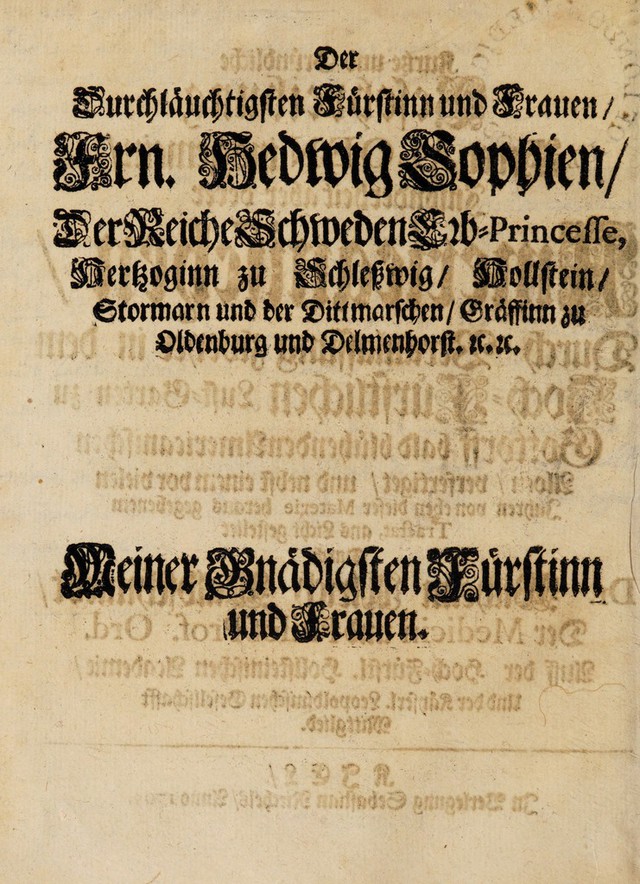 Der
Durchläuchtigsten Fürstinn und Frauen/
Frn. Hedwig Sophien/
Der Reiche Schweden Erb-Princesse,
Hertzoginn zu Schleßwig/ Hollstein/
Stormarn und der Dittmarschen/ Gräffinn zu
Oldenburg und Delmenhorst. ꝛc. ꝛc.
Meiner Gnädigsten Fürstinn
und Frauen.